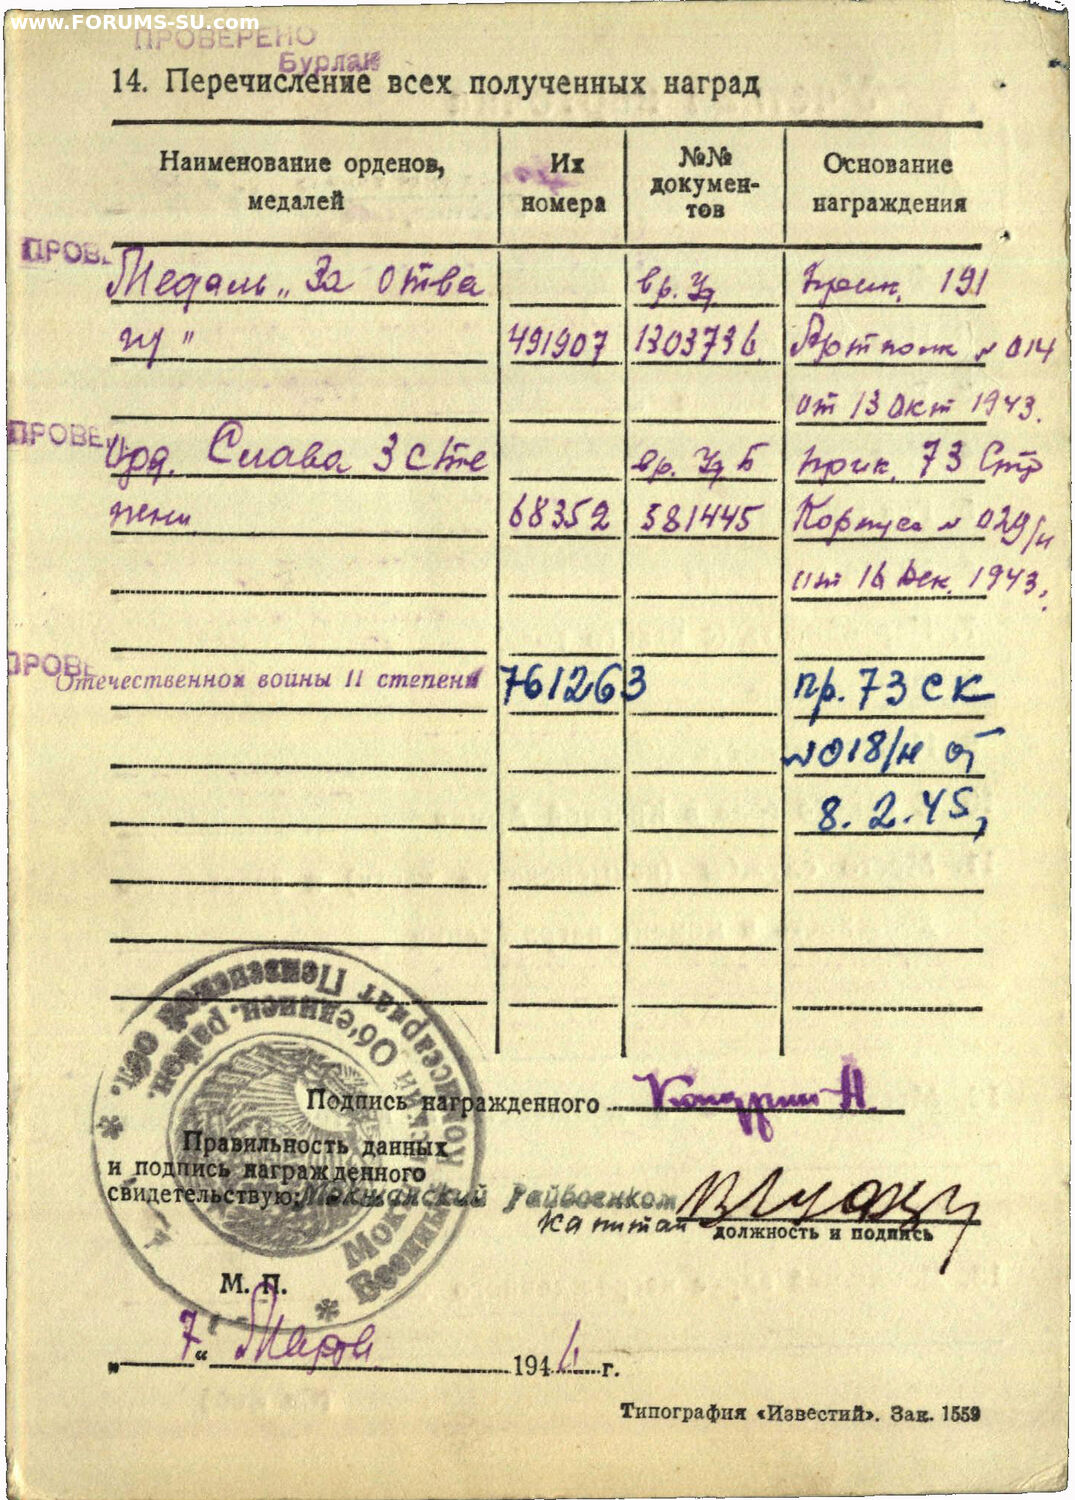 www.FORUMS-SU.com
ПРОВЕРЕНО
Бурлак
14. Перечисление всех полученных наград
Наименование орденов, медалей
Их номера
№№ докумен-
тов
Основание награждения
ПРОВЕ
Медаль „За отва вр. Уд. Прик. 191
гу" 491907 1303736 Артполк № 014
от 13 Окт 1943.
ПРОВЕ
Орд. Слава 3 сте вр. Уд Б прик. 73 Стр
пени 68352 581445 Корпуса № 029/н
от 16 Дек. 1943.
ПРОВЕ
Отечественной войны II степени 761263 пр. 73 СК
№018/н от
8.2.45,
Подпись награжденного Кондрин Н.
Правильность данных
и подпись награжденного
свидетельствую: Мокшанский Райвоенком
капитан
должность и подпись
Военный комиссариат Пензенской обл.
Мокшанский Об'единен. район.
М. П.
„ 7 “ Марта 1946 г.
Типография «Известий». Зак. 1559